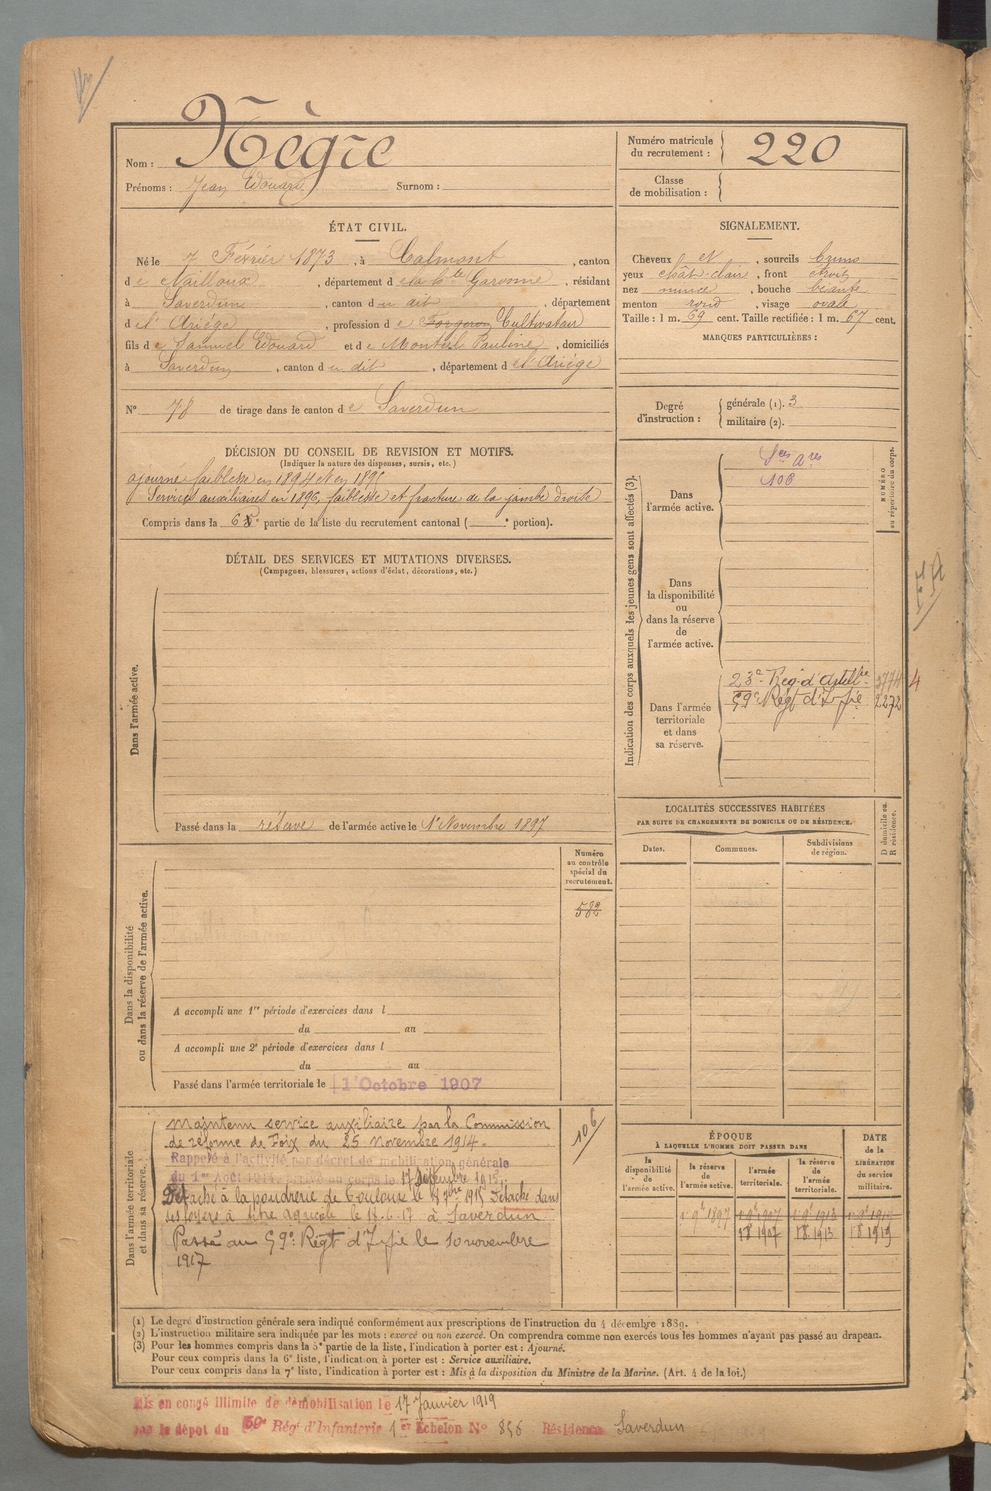 Nom : Nègre
Prénoms : Jean Edouard Surnom :
Numéro matricule du recrutement : 220
Classe de mobilisation :
ÉTAT CIVIL.
Né le 7 Février 1873, à Calmont, canton
de Nailloux, département de la Hte Garonne, résidant
à Saverdun, canton du dit, département
de l'Ariège, profession de Forgeron Cultivateur
fils de Samuel Edouard et de Monteil Pauline, domiciliés
à Saverdun, canton du dit, département de l'Ariège
N° 78 de tirage dans le canton de Saverdun
SIGNALEMENT.
Cheveux et, sourcils bruns
yeux chât-clair, front étroit
nez mince, bouche béante
menton rond, visage ovale
Taille : 1 m. 69 cent. Taille rectifiée : 1 m. 67 cent.
MARQUES PARTICULIÈRES :
Degré d'instruction : générale (1). 3
militaire (2).
DÉCISION DU CONSEIL DE REVISION ET MOTIFS.
(Indiquer la nature des dispenses, sursis, etc.)
ajourné faiblesse en 1894 et en 1895
Services auxiliaires en 1896, faiblesse et fracture de la jambe droite
Compris dans la 6e partie de la liste du recrutement cantonal ( e portion).
DÉTAIL DES SERVICES ET MUTATIONS DIVERSES.
(Campagnes, blessures, actions d'éclat, décorations, etc.)
Dans l'armée active.
Passé dans la réserve de l'armée active le 1er Novembre 1897
Indication des corps auxquels les jeunes gens sont affectés (3).
NUMÉRO au répertoire du corps.
Dans l'armée active.
Sces ares
108
Dans la disponibilité ou dans la réserve de l'armée active.
Dans l'armée territoriale et dans sa réserve.
23e Reg d'Artill
59e Régt d'Infie 2272
LOCALITÉS SUCCESSIVES HABITÉES
PAR SUITE DE CHANGEMENTS DE DOMICILE OU DE RÉSIDENCE.
Dates. Communes. Subdivisions de région. D domicile ou R résidence.
Numéro au contrôle spécial du recrutement.
582
Dans la disponibilité ou dans la réserve de l'armée active.
A accompli une 1re période d'exercices dans l
du au
A accompli une 2e période d'exercices dans l
du au
Passé dans l'armée territoriale le 1er Octobre 1907
Dans l'armée territoriale et dans sa réserve.
Maintenu service auxiliaire par la Commission
de réforme de Foix du 25 Novembre 1914.
Rappelé à l'activité par décret de mobilisation générale
du 1er Août 1914. Arrivé au corps le 17 Septembre 1915.
Détaché à la poudrerie de Toulouse le 17 7bre 1915 Détaché dans
ses foyers à titre agricole le 17-6-17 à Saverdun
Passé au 59e Régt d'Infie le 10 novembre
1917
106
ÉPOQUE
À LAQUELLE L'HOMME DOIT PASSER DANS
la disponibilité de l'armée active. la réserve de l'armée active. l'armée territoriale. la réserve de l'armée territoriale.
DATE de la LIBÉRATION du service militaire.
1 9b 1897
(1) Le degré d'instruction générale sera indiqué conformément aux prescriptions de l'instruction du 4 décembre 1889.
(2) L'instruction militaire sera indiquée par les mots : exercé ou non exercé. On comprendra comme non exercés tous les hommes n'ayant pas passé au drapeau.
(3) Pour les hommes compris dans la 5e partie de la liste, l'indication à porter est : Ajourné.
Pour ceux compris dans la 6e liste, l'indication à porter est : Service auxiliaire.
Pour ceux compris dans la 7e liste, l'indication à porter est : Mis à la disposition du Ministre de la Marine. (Art. 4 de la loi.)
Mis en congé illimité de démobilisation le 17 Janvier 1919
par le dépot du 59e Rég. d'Infanterie 1er Echelon N° 856 Résidence Saverdun